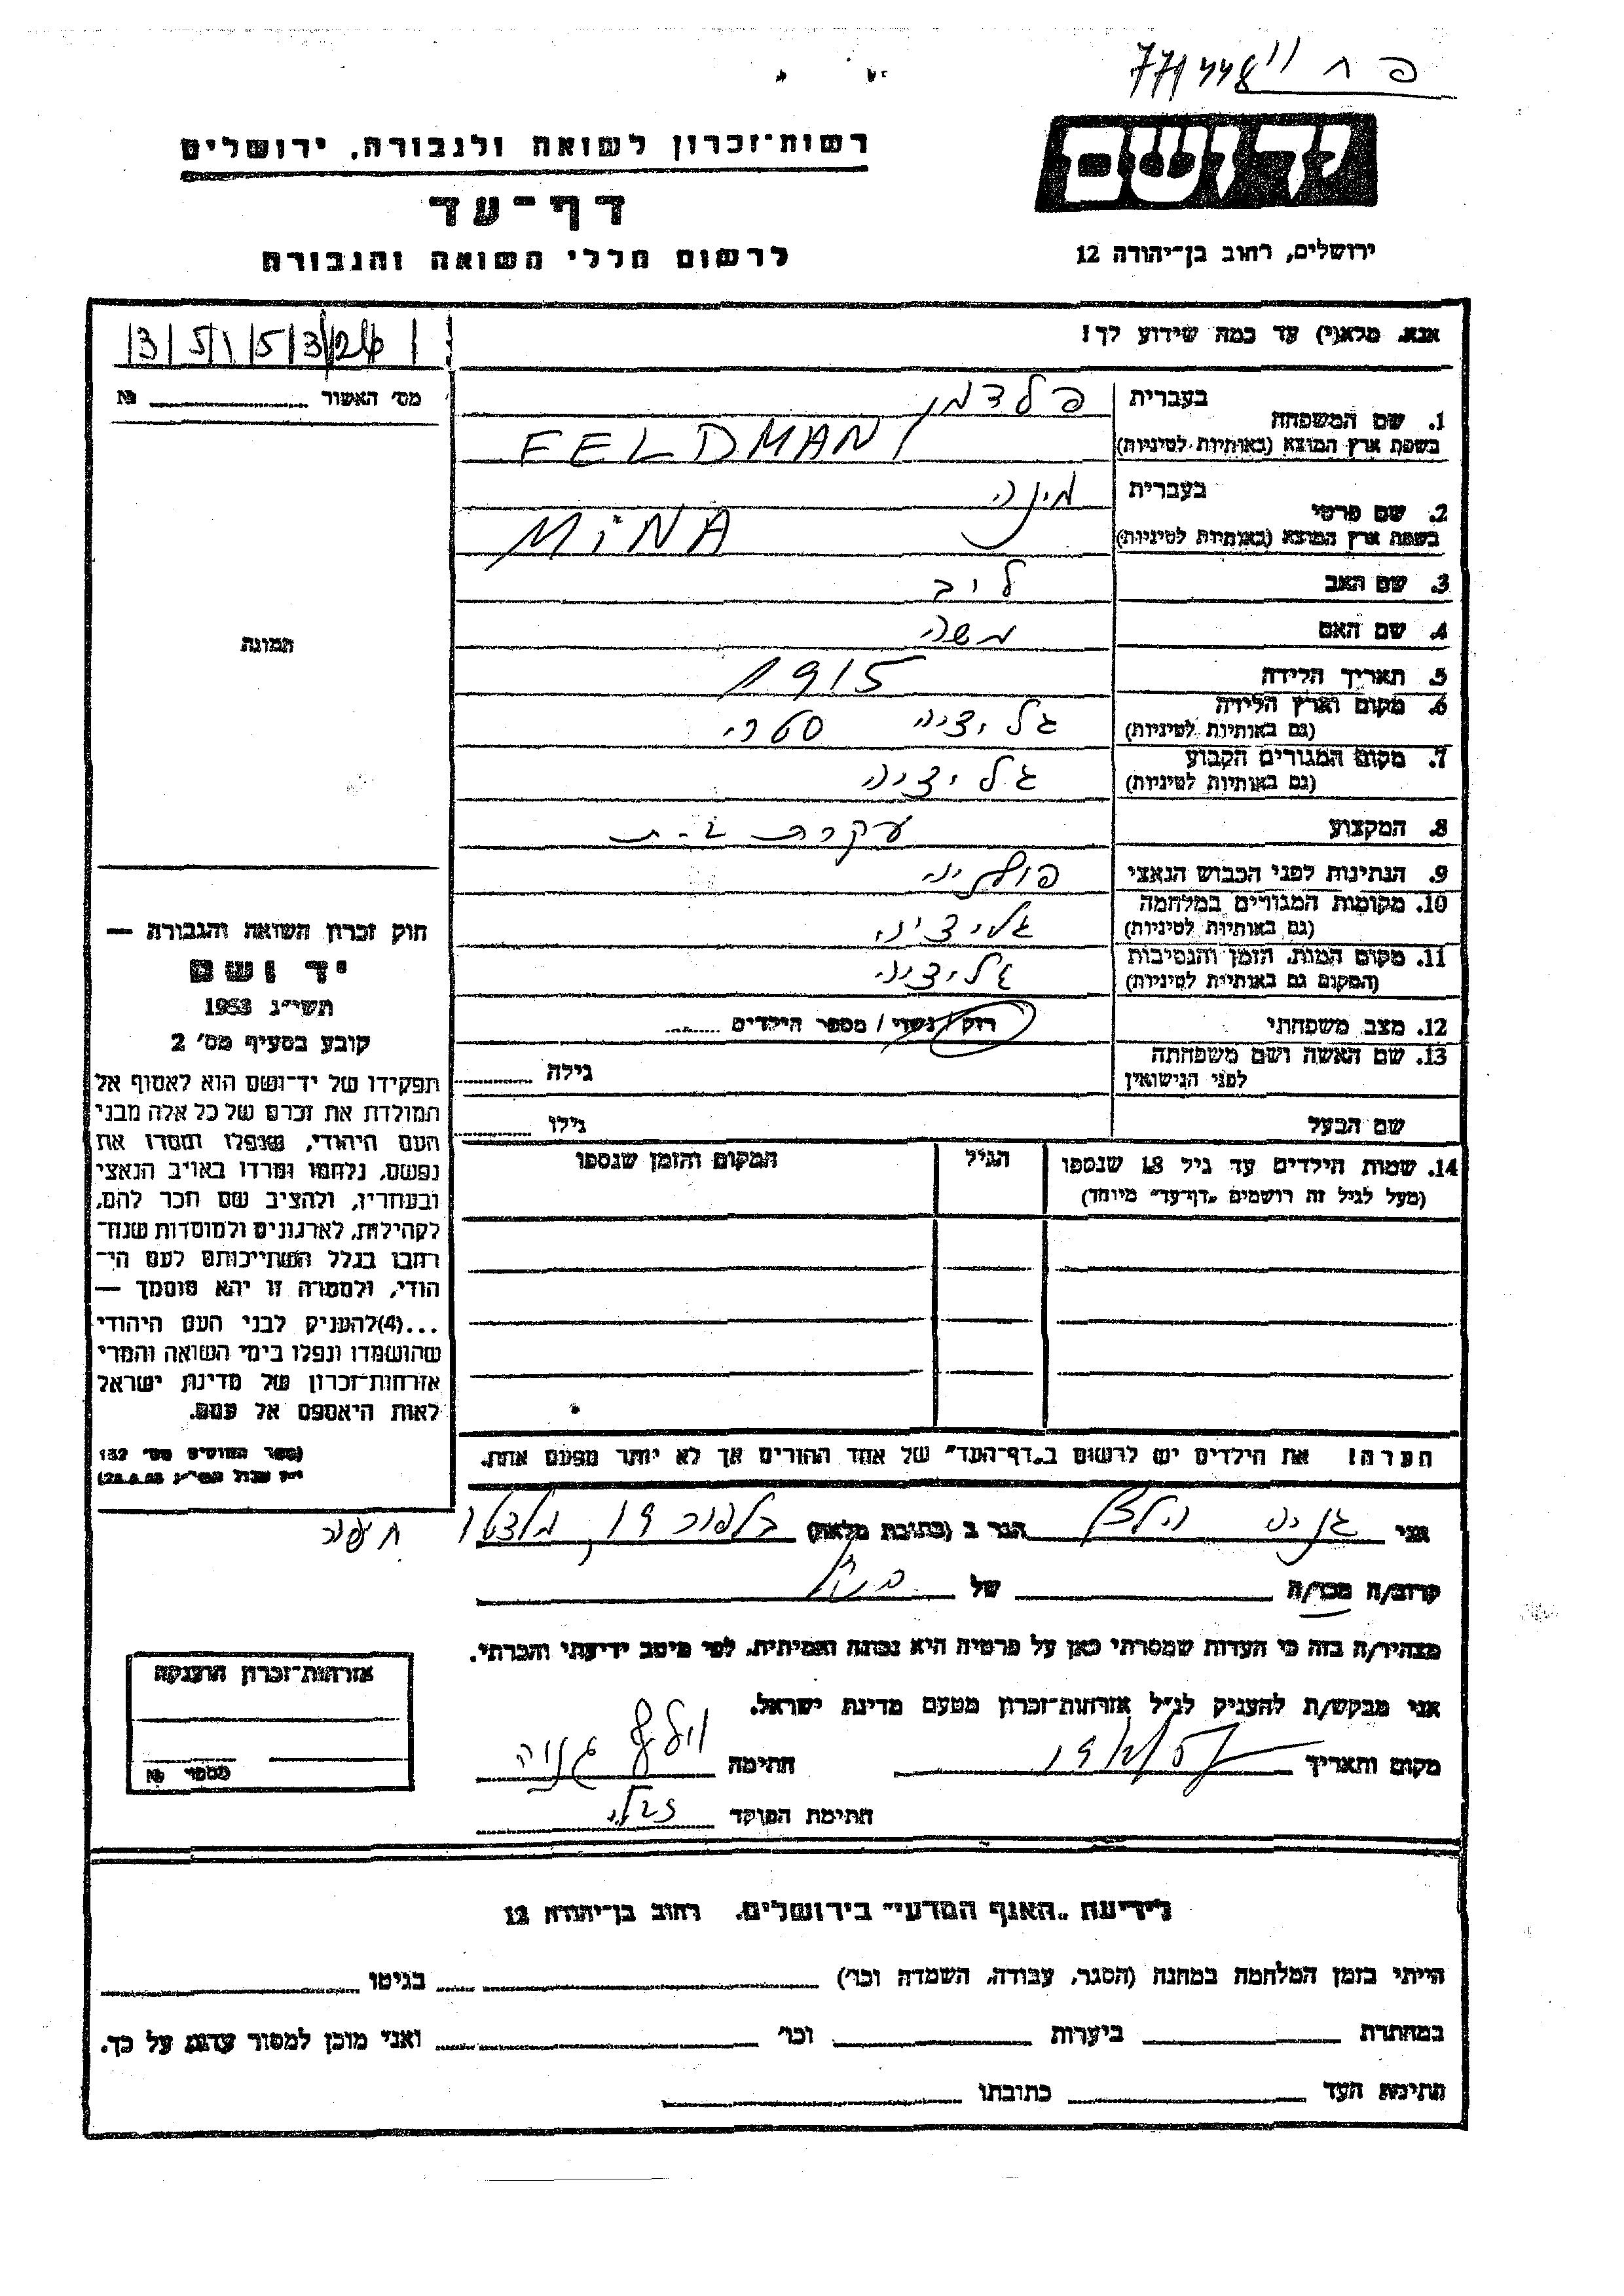 רשות־זכרון לשואה ולגבורה, ירושלים
יד ושם
דף־עד
ירושלים, רחוב בן־יהודה 12
לרשום חללי השואה והגבורה
אנא, מלא(י) עד כמה שידוע לך!
מס' האשור № ____
1. שם המשפחה
בעברית פלדמן
בשפת ארץ המוצא (באותיות לטיניות) FELDMAN
2. שם פרטי
בעברית מינה
בשפת ארץ המוצא (באותיות לטיניות) MiNA
3. שם האב לייב
4. שם האם משה
5. תאריך הלידה 1915
6. מקום וארץ הלידה גליציה
(גם באותיות לטיניות)
7. מקום המגורים הקבוע גליציה
(גם באותיות לטיניות)
8. המקצוע עקרת ב-ת
9. הנתינות לפני הכבוש הנאצי פולניה
10. מקומות המגורים במלחמה גליציה
(גם באותיות לטיניות)
11. מקום המות, הזמן והנסיבות גליציה
(המקום גם באותיות לטיניות)
12. מצב משפחתי רווק / נשוי / מספר הילדים
13. שם האשה ושם משפחתה גילה
לפני הנישואין
שם הבעל גילו
14. שמות הילדים עד גיל 18 שנספו הגיל המקום והזמן שנספו
(מעל לגיל זה רושמים „דף־עד" מיוחד)
הערה! את הילדים יש לרשום ב„דף־העד" של אחד ההורים אך לא יותר מפעם אחת.
התמונה
חוק זכרון השואה והגבורה —
יד ושם
תשי״ג 1953
קובע בסעיף מס' 2
תפקידו של יד־ושם הוא לאסוף אל
המולדת את זכרם של כל אלה מבני
העם היהודי, שנפלו ומסרו את
נפשם, נלחמו ומרדו באויב הנאצי
ובעוזריו, ולהציב שם וזכר להם,
לקהילות, לארגונים ולמוסדות שנח־
רבו בגלל השתייכותם לעם הי־
הודי, ולמטרה זו יהא מוסמך —
...(4)להעניק לבני העם היהודי
שהושמדו ונפלו בימי השואה והמרי
אזרחות־זכרון של מדינת ישראל
לאות היאספם אל עמם.
(ספר החוקים מס' 132
אני גניה הגר ב (כתובת מלאה) בלפור 19, חיפה
קרוב/ה מכר/ה ____ של ____
מצהיר/ה בזה כי העדות שמסרתי כאן על פרטיה היא נכונה ואמיתית, לפי מיטב ידיעתי והכרתי.
אני מבקש/ת להעניק לנ״ל אזרחות־זכרון מטעם מדינת ישראל.
מקום ותאריך ____ חתימה ____ גניה
חתימת הפוקד
אזרחות־זכרון הוענקה
מספר №
לידיעת „האגף המדעי" בירושלים, רחוב בן־יהודה 12
הייתי בזמן המלחמה במחנה (הסגר, עבודה, השמדה וכו') ____ בגיטו ____
במחתרת ____ ביערות ____ וכו' ____ ואני מוכן למסור עדות על כך.
חתימת העד ____ כתובתו ____